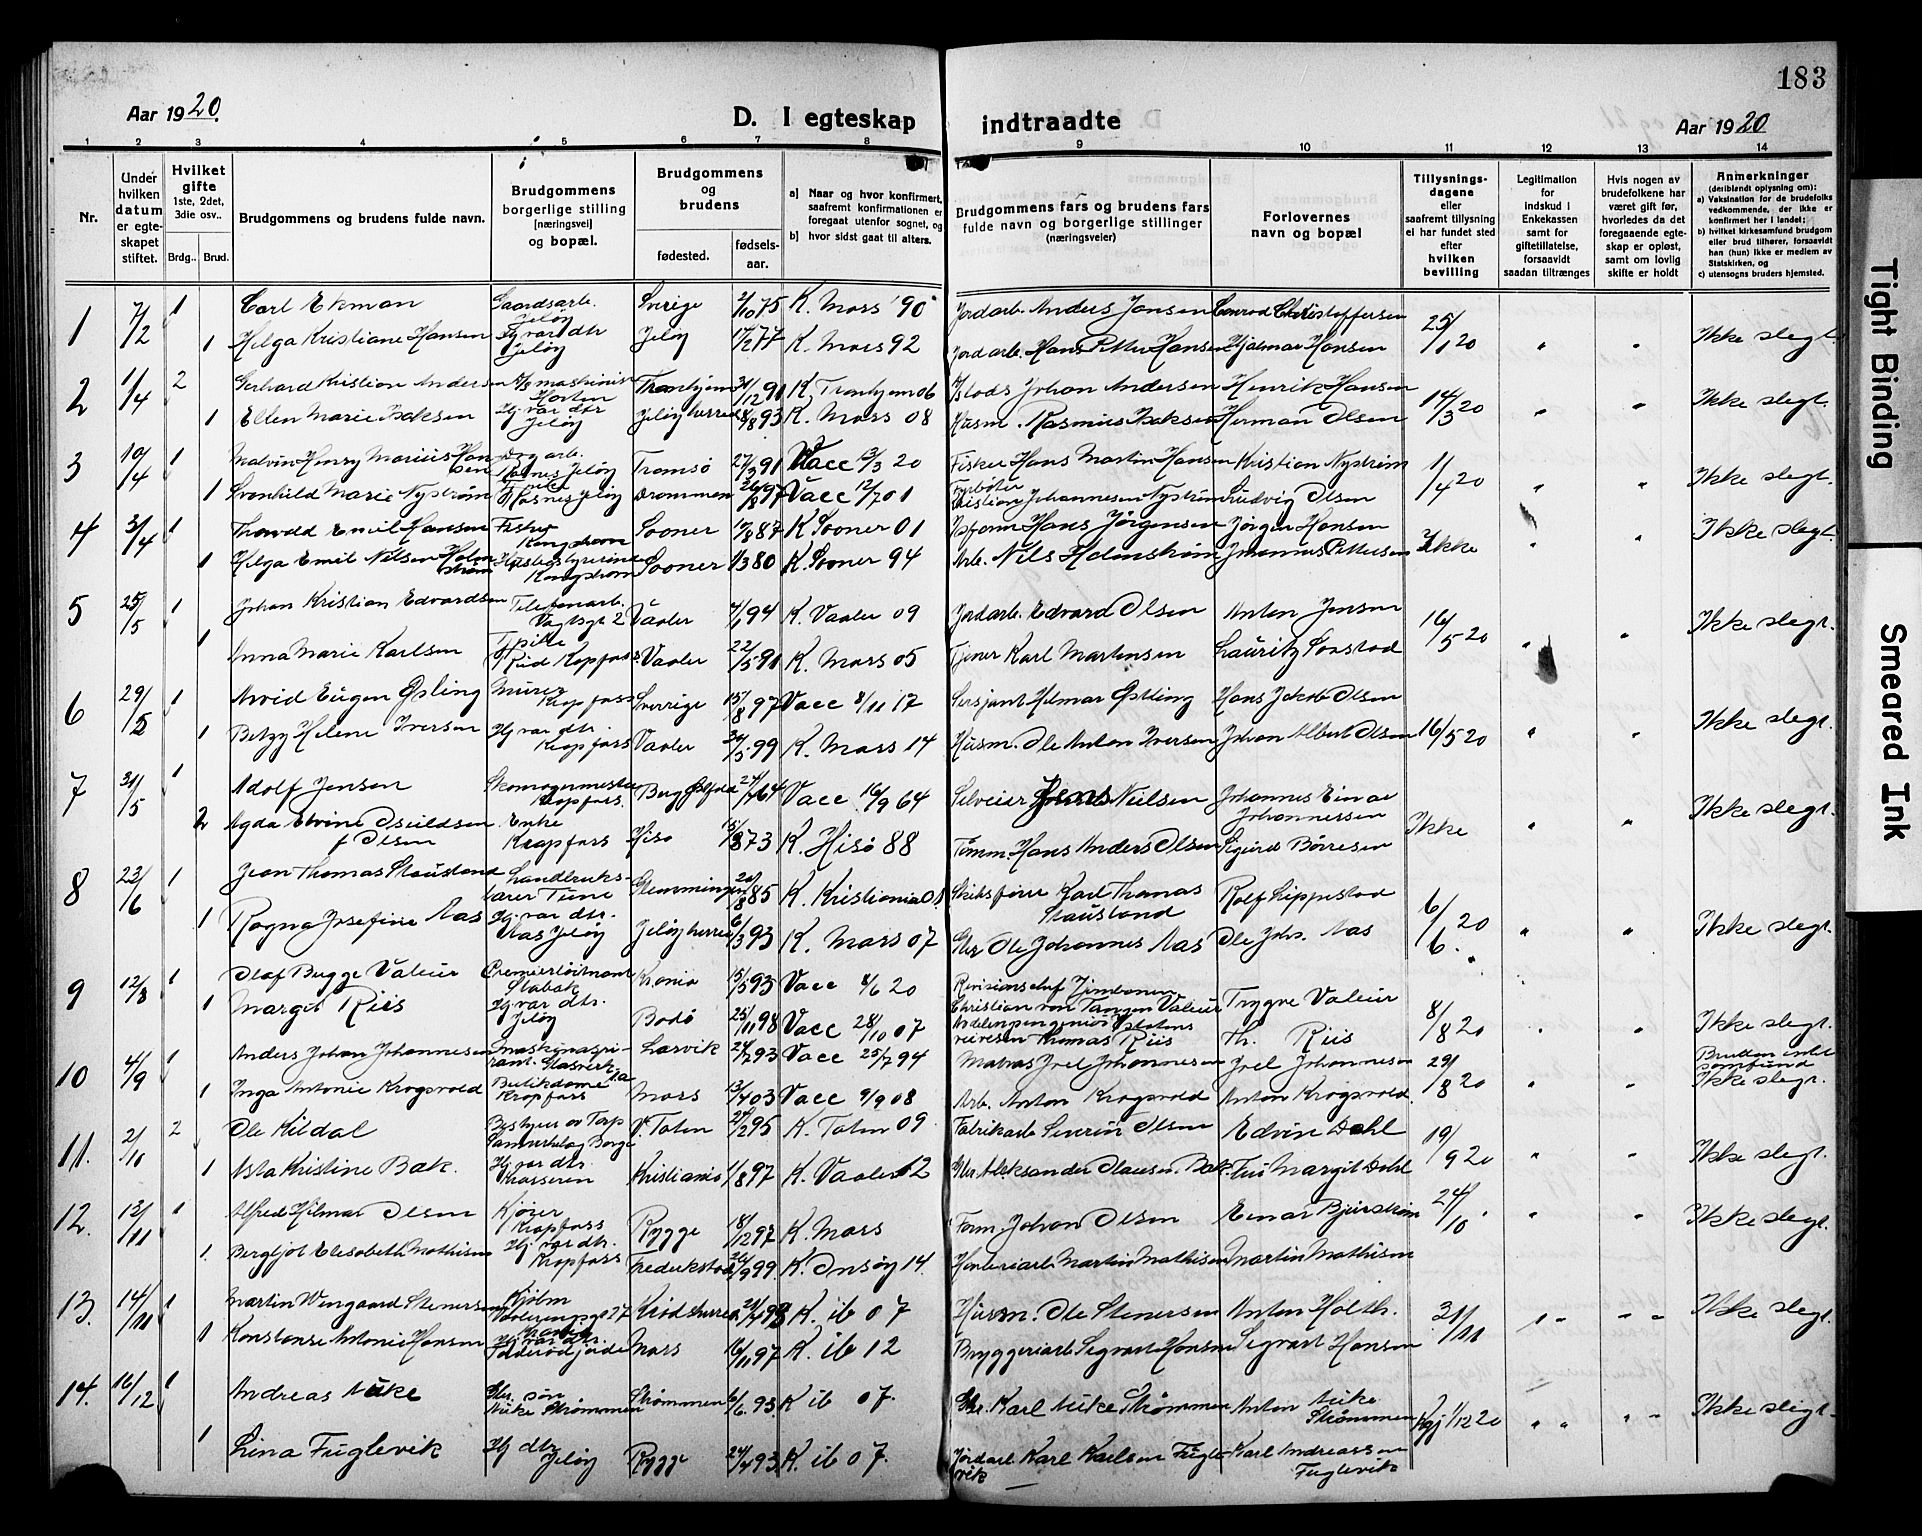 183
Aar 1920.
D. I egteskap indtraadte
Aar 1920
1 2 3 4 5 6 7 8 9 10 11 12 13 14
Nr.
Under hvilken datum er egteskapet stiftet.
Hvilket gifte 1ste, 2det, 3die osv..
Brdg.. Brud.
Brudgommens og brudens fulde navn.
Brudgommens borgerlige stilling (næringsvei) og bopæl.
Brudgommens og brudens
fødested.
fødsels-aar.
a) Naar og hvor konfirmert, saafremt konfirmationen er foregaat utenfor sognet, og
b) hvor sidst gaat til alters.
Brudgommens fars og brudens fars fulde navn og borgerlige stillinger (næringsveier)
Forlovernes navn og bopæl
Tillysnings-dagene eller saafremt tillysning ei har fundet sted efter hvilken bevilling
Legitimation for indskud i Enkekassen samt for giftetillatelse, forsaavidt saadan tiltrænges
Hvis nogen av brudefolkene har været gift før, hvorledes da det foregaaende egteskap er opløst, samt om lovlig skifte er holdt
Anmerkninger (deriblandt oplysning om): a) Vaksination for de brudefolks vedkommende, der ikke er konfirmert her i landet; b) hvilket kirkesamfund brudgom eller brud tilhører, forsaavidt han (hun) ikke er medlem av Statskirken, og c) utensogns bruders hjemsted.
1 7/2 1 Carl Ekman Gaardsarb. Jeløy Sverige 2/10 75 K. Moss 90 Jordarb. Anders Jonsen Conrad Christoffersen 25/1 20 Ikke slegt
1 Helga Kristiane Hansen Hj. var. dtr Jeløy Jeløy 17/2 77 K. Moss 92 Jordarb. Hans Petter Hansen Hjalmar Hansen
2 1/4 2 Gerhard Kristian Andersen maskinist Horten Tronhjem 31/12 91 K Tronhjem 06 Johan Andersen Henrik Hansen 14/3 20 Ikke slegt.
1 Ellen Marie Isaksen Hj. var dtr Jeløy Jeløy herred 8/8 93 K. Moss 08 Husm. Rasmus Isaksen Herman Olsen
3 10/4 1 Malvin Henry Marius Hansen Dagarb. Kasnes Jeløy Tromsø 27/3 91 Vacc 13/3 20 Fisker Hans Martin Hansen Kristian Nystrøm 1/4 20 Ikke slegt.
1 Svanhild Marie Nystrøm Kasnes Jeløy Drammen 97 Vacc 12/7 01 Fyrbøter Kristian Johannesen Nystrøm Ludvig Olsen
4 3/4 1 Thorvald Emil Hansen Fisker Kongshavn Sooner 10/8 87 K. Sooner 01 Hans Jørgensen Jørgen Hansen Ikke Ikke slegt.
1 Helga Emil Nilsen Holmstrøm Husbestyrerinde Kongshavn Sooner 1/3 80 K. Sooner 94 Arb. Nils Holmstrøm Johannes Pettersen
5 25/5 1 Johan Kristian Edvardsen Telefonarb. Vogtsgt 2 Vaaler 94 K. Vaaler 09 Jordarb. Edvard Olsen Anton Jensen 16/5 20 Ikke slegt.
1 Anna Marie Karlsen Tj.pike Rud Kopfoss Vaaler 22/5 91 K. Moss 05 Tjener Karl Martensen Lauritz Sonstad
6 29/5 1 Arvid Eugen Østling Murer Kopfoss Sverrige 15/8 97 Vacc 8/11 17 Sersjant Hilmar Østling Hans Jakob Olsen 16/5 20 Ikke slegt.
1 Betzy Helene Iversen Hj. var dtr. Kropfoss Vaaler 30/5 99 K. Moss 14 Husm. Ole Anton Iversen Johan Albert Olsen
7 31/5 1 Adolf Jensen Skomagermester Kropfoss. Borg Østfold 24/7 64 Vacc 16/9 64 Nielsen Johannes Einar Johannessen Ikke Ikke slegt.
2 Agda Elvine Osuldsen f Olsen Enke Kropfoss Hisø 15/8 73 K. Hisø 88 Tømm. Hans Anders Olsen Sigurd Børresen
8 23/6 1 Jean Thomas Stausland Landbrukslærer Tune Glemmingen 20/8 85 K. Kristiania Skibsfører Karl Thomas Stausland Rolf Lippestad 6/6 20 Ikke slegt.
1 Ragna Josefine Aas Hj. var dtr. Aas Jeløy Jeløy herred 6/3 93 K. Moss 07 Gbr Ole Johannes Aas Ole Joh. Aas
9 12/8 1 Olaf Bugge Valeur Premierløitnant Stabæk Krania 15/5 93 Vacc 4/6 20 Revisionschef Christian von Tangen Valeur Trygve Valeur 8/8 20 Ikke slegt.
1 Margit Riis Hj. var dtr. Jeløy Bodø 25/11 98 Vacc 28/10 07 Thomas Riis Th. Riis
10 4/9 1 Anders Johan Johannesen maskinaspirant. Glasverk Larvik 24/7 93 Vacc 25/7 94 Matros Joel Johannesen Joel Johannesen 29/8 20 Bruden samfund Ikke slegt.
1 Inga Antonie Krogsvold Butikdame Kropfoss Moss 13/4 03 Vacc 9/9 08 Arb. Anton Krogsvold Anton Krogsvold.
11. 2/10 2 Ole Kildal Bestyrer av Torp Borge V. Toten 2 95 K. Toten 09. Fabrikarb Severin Olsen Edvin Dahl 19/9 20 Ikke slegt.
1 Asta Kristine Bak. Hj. var dtr. Krosseren Kristiania 1/8 97 K. Vaaler 12 Gbr. Aleksander Olausen Bak. Fru Margit Dahl
12. 13/11 1 Alfred Hilmar Olsen Kjører Kropfoss Rygge 18/12 97 K. Moss Form. Johan Olsen Einar Bjørnstrøm 24/10 Ikke slegt.
1. Bergljot Elisabeth Mathisen Hj. var dtr. Kropfoss Fredrikstad 26/9 99 K. Onsøy 14. Martin Mathisen Martin Mathisen
13. 14/11 1 Martin Wengaard Stenersen Kjøbm Vaalerenggt 27 Krødsherred 21/4 93 K. ib 07 Husm. Ole Stenersen Anton Holth. 31/11 Ikke slegt.
1 Konstanse Antonie Hansen Hj. var dtr. Tollerødjorde Moss 16/11 97 K. ib 12 Bryggeriarb Segvart Hansen Segvart Hansen
14. 16/12 1 Andreas Auke Gbr. søn Auke Strømmen Strømmen 6/6. 93. K ib 07. Gbr. Karl Auke Strømmen Anton Auke Strømmen Kgj 1/12 20 Ikke slegt.
1 Lina Fuglevik Hj dtr Jeløy Rygge 24/4 93 K. ib 07. Jordarb Karl Karlsen Fuglevik Karl Andreassen Fuglevik
Tight Binding
Smeared Ink